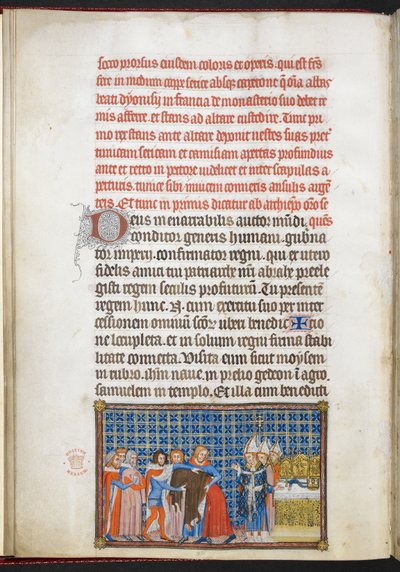 serico prorsus eiusdem coloris et operis. qui est fris
fere in medium carpe serice absq; caperone q̄ oīa abbas
beati dyonisij in francia de monasterio suo debet re
mis afferre. et stans ad altare custodire. Tunc pri
mo rex stans ante altare deponit uestes suas pret
tunicam sericam et camisiam apertas profundius
ante et retro in pectore uidelicet et inter scapulas a
perturis. tunice sibi inuicem connexis ansulis argē
teis. Et tunc in primis dicatur ab archiepo oro se
Deus inenarrabilis auctor mūdi. quēs
conditor generis humani. gubna
tor imperij. confirmator regni. qui ex utero
fidelis amici tui patriarche nr̄i abrahe preele
gisti regem seculis profuturum. Tu presentē
regem hunc. N. cum exercitu suo per inter
cessionem omnium scōr uberi benedic✠tio
ne locupleta. et in solium regni firma stabi
litate connecta. Visita eum sicut moysen
in rubro. ihm naue. in prelio gedeon ī agro.
samuelem in templo. Et illa eum benedicti
BRITISH
MUSEUM